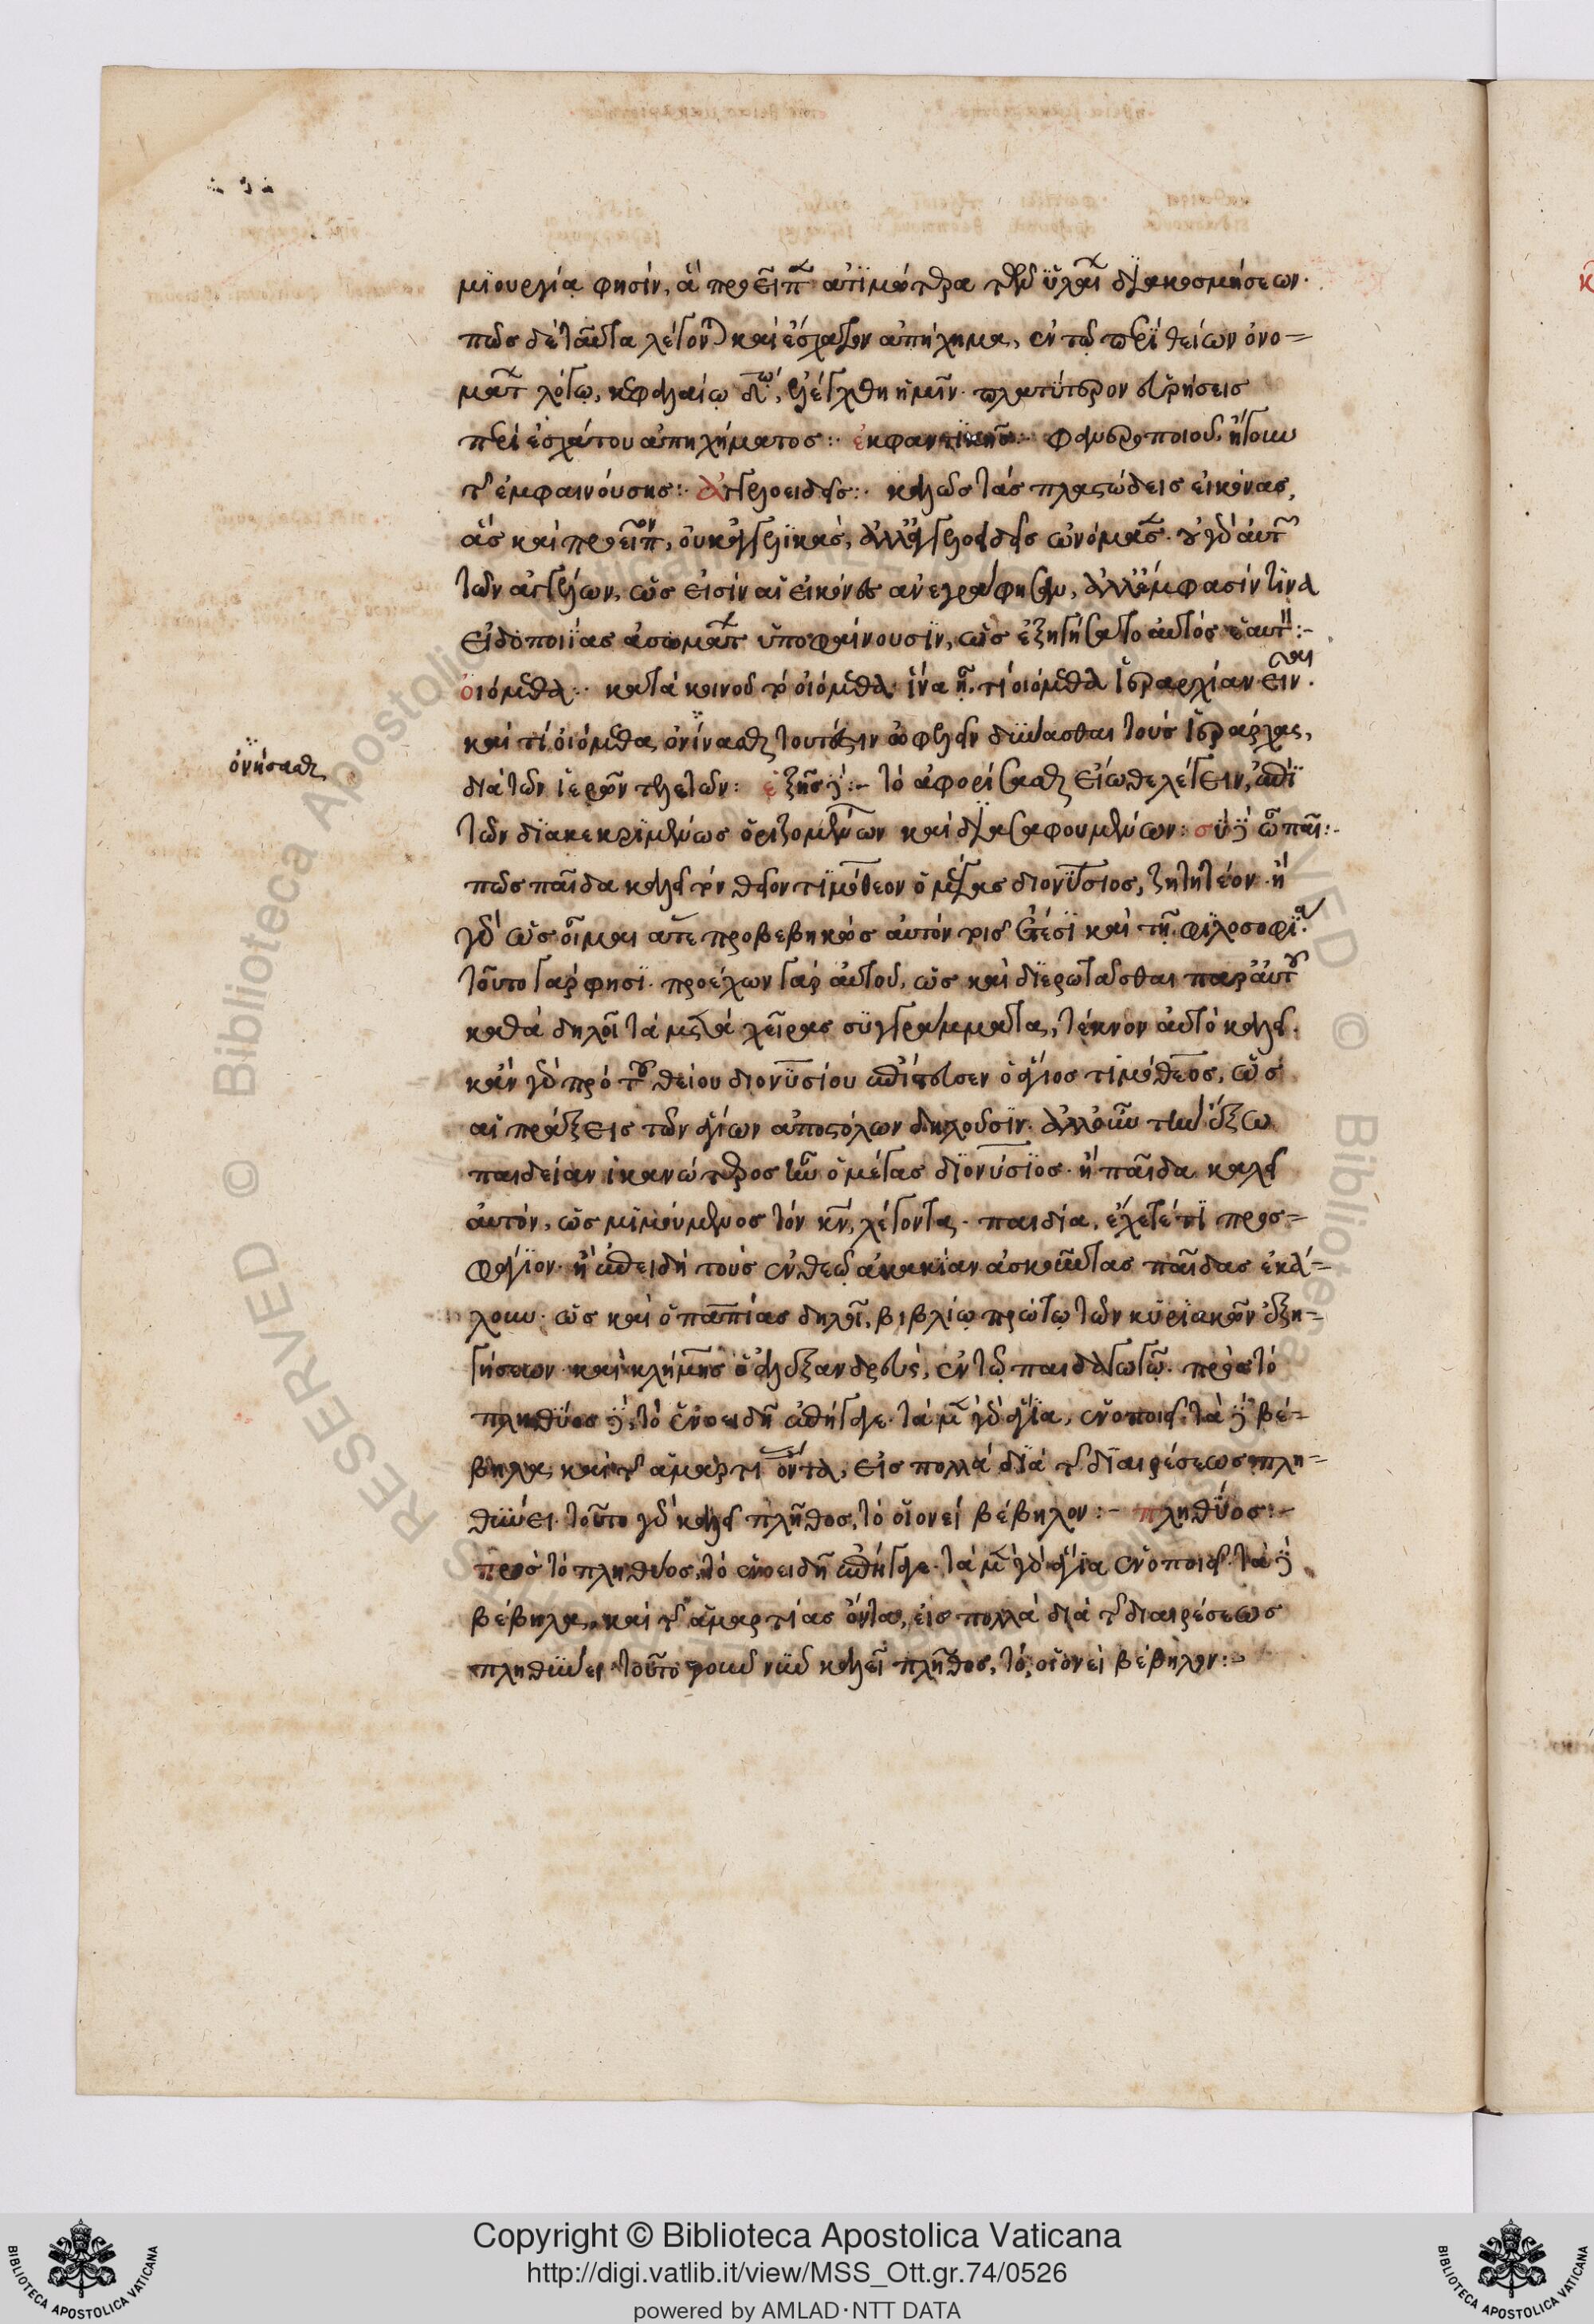 μιουργία φησίν, ἃ προεῖπ ἀτιμότερα τῶν ὑλαί διακοσμήσεων.
πῶς δὲ ταῦτα λέγονται καὶ ἔσχατον ἀπήχημα, ἐν τῷ περὶ θείων ὀνο=
μάτ λόγῳ, κεφαλαίῳ δῳ, ἐλέγχθη ἡμῖν. πλατύτερον εὑρήσεις
περὶ ἐσχάτου ἀπηχήματος :. ἐκφαντικῆς :. φανεροποιοῦ, ἤγουν
τῆς ἐμφαινούσης :. ἀγγελοειδεῖς :. καλῶς τὰς πλαστώδεις εἰκόνας,
ἃς καὶ προεῖπον, οὐκ ἀγγελικὰς, ἀλλ' ἀγγελοειδεῖς ὠνόμασ. οὐ γὰρ αὐτ
τῶν ἀγγέλων, ὥς εἰσὶν αἱ εἰκόνες ἀνεγράφησαν, ἀλλ' ἔμφασίν τινα
εἰδοποιΐας ἀσωμάτ ὑποφαίνουσιν, ὡς ἐξηγήσατο αὐτὸς ἑαυτ :-
οἰόμεθα :. κατὰ κοινοῦ τὸ οἰόμεθα. ἵνα ᾖ, τί οἰόμεθα ἱεραρχίαν εἶναι.
καὶ τί οἰόμεθα ὀνίνασθαι τουτέστιν ὠφελεῖν δύνασθαι τοὺς ἱεράρχας,
ὀνήσασθαι
διὰ τῶν ἱερῶν τελετῶν : ἑξῆς δέ :- τὸ ἀφορίσασθαι εἴωθε λέγειν, ἐπὶ
τῶν διακεκριμένως ὁριζομένων καὶ διασαφουμένων : σὺ δὲ ὦ παῖ :-
πῶς παῖδα καλεῖ τὸν θεῖον τιμόθεον ὁ μέγας διονύσιος, ζητητέον. ἢ
γὰρ ὡς οἶμαι ἅτε προβεβηκὸς αὐτὸν τοῖς ἔτεσι καὶ τῇ φιλοσοφίᾳ.
τοῦτο γάρ φησι. προέχων γὰρ αὐτοῦ, ὡς καὶ διερωτᾶσθαι παρ' αὐτοῦ
καθὰ δηλοῖ τὰ μετὰ χεῖρας συγγράμματα, τέκνον αὐτὸ καλεῖ.
κἂν γὰρ πρὸ τοῦ θείου διονυσίου ἐπίστευσεν ὁ ἅγιος τιμόθεος, ὡς
αἱ πράξεις τῶν ἁγίων ἀποστόλων δηλοῦσιν. ἀλλ' οὖν τὴν ἔξω
παιδείαν ἱκανώτερος ἦν ὁ μέγας διονύσιος. ἢ παῖδα καλεῖ
αὐτὸν, ὡς μιμούμενος τὸν κν, λέγοντα. παιδία, ἔχετέ τι προσ=
φάγιον. ἢ ἐπειδὴ τοὺς ἐν θεῷ ἀκακίαν ἀσκοῦντας παῖδας ἐκά=
λουν. ὡς καὶ ὁ παππίας δηλοῖ, βιβλίῳ πρώτῳ τῶν κυριακῶν ἐξη=
γήσεων. καὶ κλήμης ὁ ἀλεξανδρεὺς, ἐν τῷ παιδαγωγῷ. πρὸς τὸ
πληθύος δὲ, τὸ ἑνοειδῆ ἐπήγαγε. τὰ μὲν γὰρ ἅγια, ἑνοποιεῖ. τὰ δὲ βέ=
βηλα καὶ τῆς ἁμαρτι ὄντα, εἰς πολλὰ διὰ τῆς διαιρέσεως πλη=
θύνει. τοῦτο γὰρ καλεῖ πλῆθος, τὸ οἱονεὶ βέβηλον :- πληθύος :-
πρὸς τὸ πληθύος, τὸ ἑνοειδῆ ἐπήγαγε. τὰ μὲν γὰρ ἅγια ἑνοποιεῖ. τὰ δὲ
βέβηλα, καὶ τῆς ἁμαρτίας ὄντα, εἰς πολλὰ διὰ τῆς διαιρέσεως
πληθύνει τοῦτο γοῦν νῦν καλεῖ πλῆθος, τὸ, οἱονεὶ βέβηλον :-
Copyright © Biblioteca Apostolica Vaticana
http://digi.vatlib.it/view/MSS_Ott.gr.74/0526
powered by AMLAD·NTT DATA